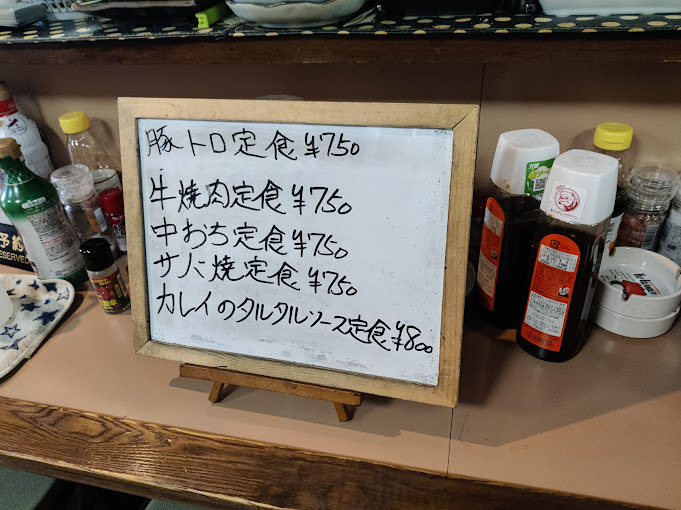 豚トロ定食 ¥750
牛焼肉定食 ¥750
中おち定食 ¥750
サバ焼定食 ¥750
カレイのタルタルソース定食 ¥800
予約
RESERVED